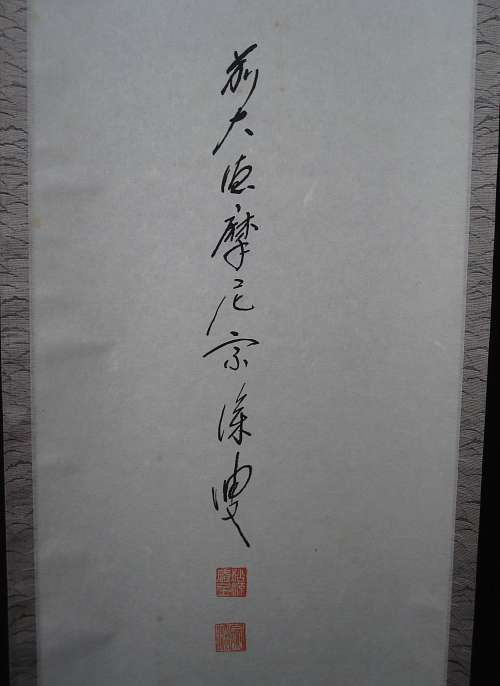 前大徳摩尼宗叟